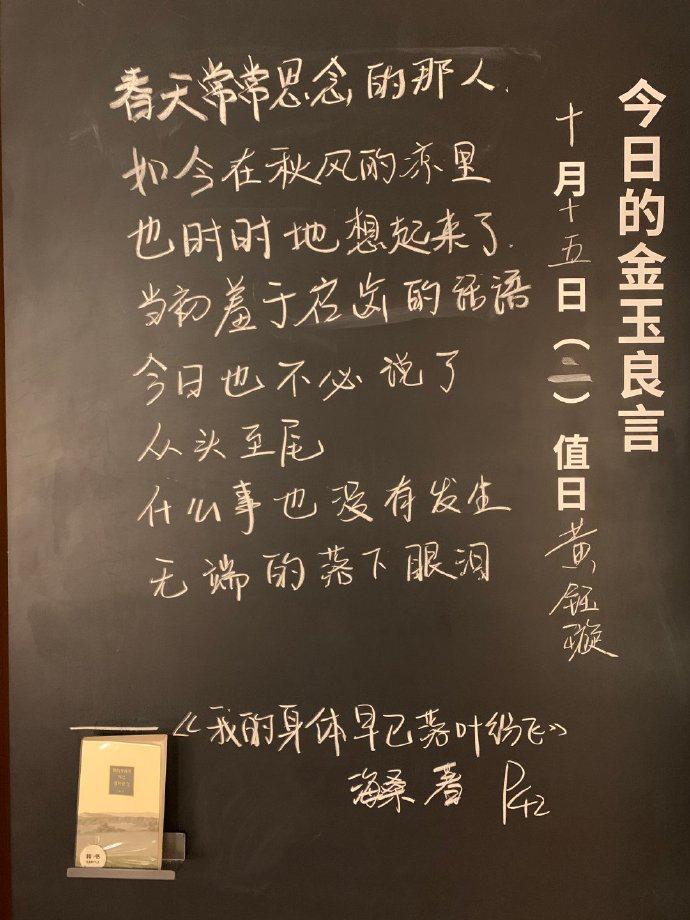 今日的金玉良言
十月十五日（二）值日黄钰璇
春天常常思念的那人
如今在秋风的凉里
也时时地想起来了
当初羞于启齿的话语
今日也不必说了
从头至尾
什么事也没有发生
无端的落下眼泪
——《我的身体早已落叶纷飞》
海桑 著 P42